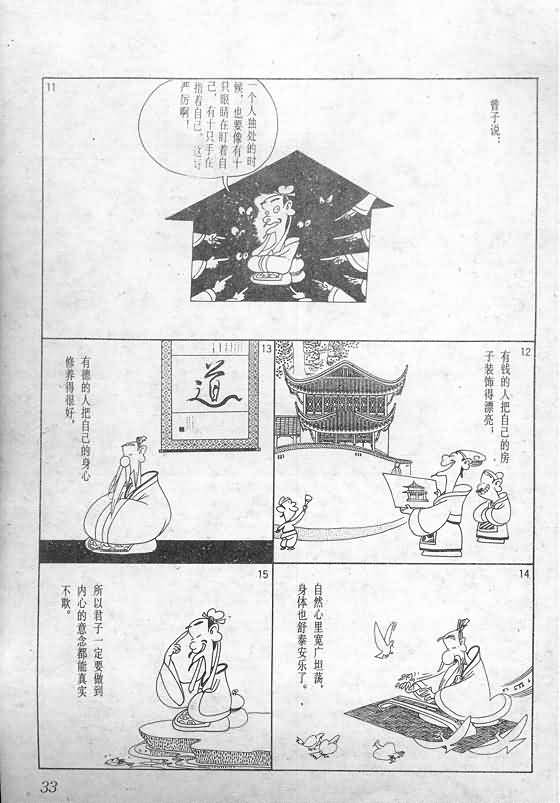 11
曾子说：
一个人独处的时
候，也要像有十
只眼睛在盯着自
己，有十只手在
指着自己，这
严厉啊！
12
有钱的人把自己的房
子装饰得漂亮；
13
道
有德的人把自己的身心
修养得很好，
14
自然心里宽广坦荡，
身体也舒泰安乐了。
15
所以君子一定要做到
内心的意念都能真实
不欺。
33